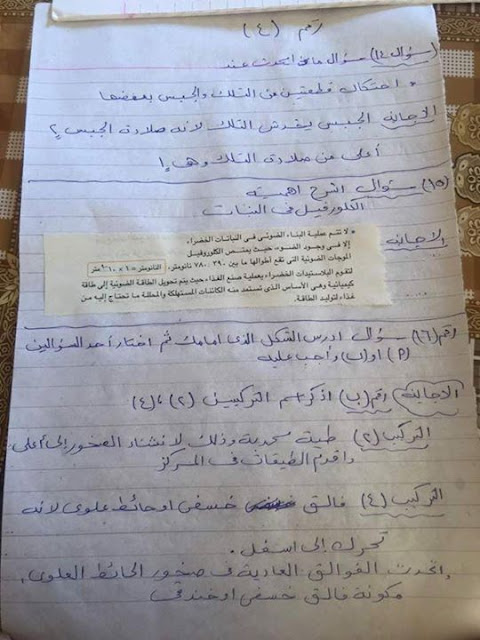 رقم (٤)
سؤال ١٤) سؤال ماذا يحدث عند
* احتكاك قطعتين من التلك والجبس ببعضهما
الاجابة الجبس يخدش التلك لانه صلادة الجبس ٢
أعلى من صلادة التلك وهى ١
(١٥) سؤال اشرح اهمية
الكلورفيل فى النبات
الاجابة
* لا تتم عملية البناء الضوئى فى النباتات الخضراء
إلا فى وجود الضوء، حيث يمتص الكلوروفيل
الموجات الضوئية التى تقع أطوالها ما بين ٣٩٠: ٧٨٠ نانومتر،
لتقوم البلاستيدات الخضراء بعملية صنع الغذاء حيث يتم تحويل الطاقة الضوئية إلى طاقة
كيميائية وهى الأساس الذى تستمد منه الكائنات المستهلكة والمحللة ما تحتاج إليه من
غذاء لتوليد الطاقة.
رقم (١٦) سؤال ادرس الشكل الذى امامك ثم اختار أحد السؤالين
(أ) او (ب) وأجب عليه
الاجابة رقم (ب) اذكر اسم التركيبين (٢)، (٤)
التركيب (٢) طية محدبة وذلك لانثناء الصخور إلى أعلى
واقدم الطبقات فى المركز
التركيب (٤) فالق خسفى او حائط علوى لانه
تحرك إلى اسفل.
الفوالق العادية فى صخور الحائط العلوى
مكونة فالق خسفى او خندقى